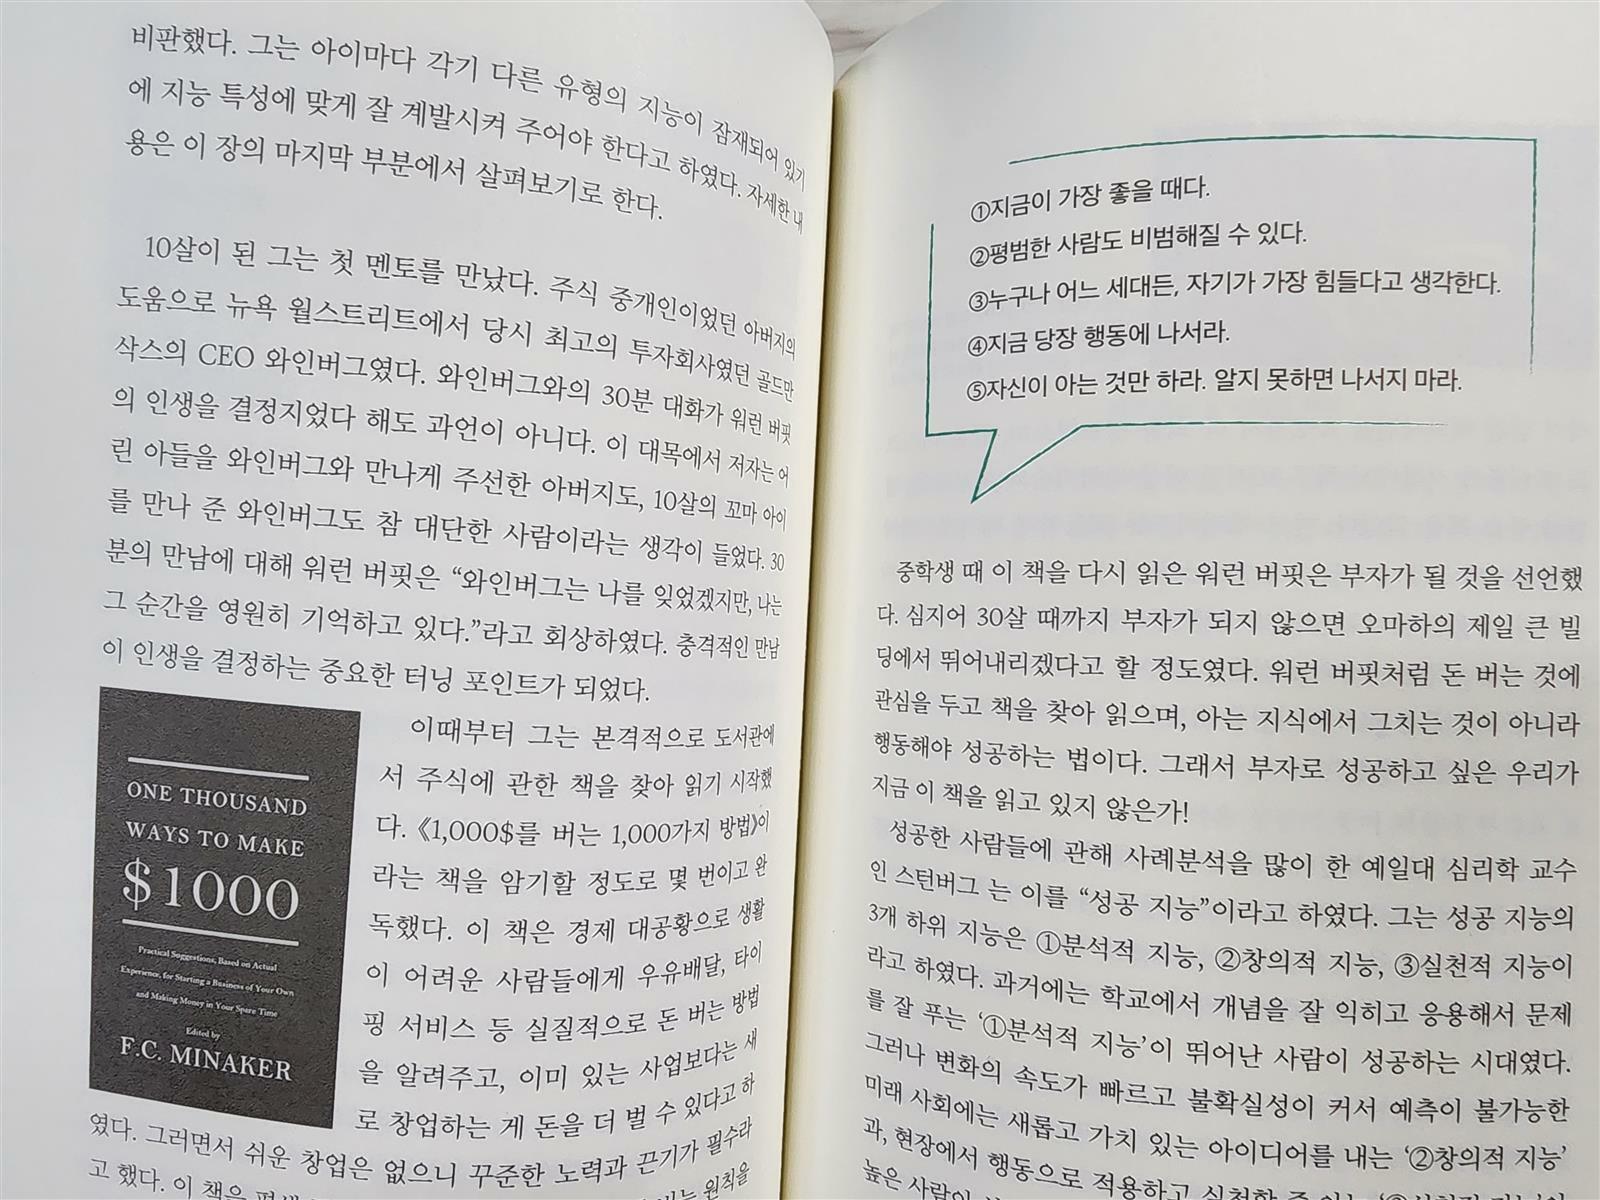 비판했다. 그는 아이마다 각기 다른 유형의 지능이 잠재되어 있기
에 지능 특성에 맞게 잘 계발시켜 주어야 한다고 하였다. 자세한 내
용은 이 장의 마지막 부분에서 살펴보기로 한다.
10살이 된 그는 첫 멘토를 만났다. 주식 중개인이었던 아버지의
도움으로 뉴욕 월스트리트에서 당시 최고의 투자회사였던 골드만
삭스의 CEO 와인버그였다. 와인버그와의 30분 대화가 워런 버핏
의 인생을 결정지었다 해도 과언이 아니다. 이 대목에서 저자는 어
린 아들을 와인버그와 만나게 주선한 아버지도, 10살의 꼬마 아이
를 만나 준 와인버그도 참 대단한 사람이라는 생각이 들었다. 30
분의 만남에 대해 워런 버핏은 “와인버그는 나를 잊었겠지만, 나는
그 순간을 영원히 기억하고 있다.”라고 회상하였다. 충격적인 만남
이 인생을 결정하는 중요한 터닝 포인트가 되었다.
이때부터 그는 본격적으로 도서관에
서 주식에 관한 책을 찾아 읽기 시작했
다. 《1,000$를 버는 1,000가지 방법》이
라는 책을 암기할 정도로 몇 번이고 완
독했다. 이 책은 경제 대공황으로 생활
이 어려운 사람들에게 우유배달, 타이
핑 서비스 등 실질적으로 돈 버는 방법
을 알려주고, 이미 있는 사업보다는 새
로 창업하는 게 돈을 더 벌 수 있다고 하
였다. 그러면서 쉬운 창업은 없으니 꾸준한 노력과 끈기가 필수라
고 했다. 이 책은 원칙을
ONE THOUSAND
WAYS TO MAKE
$1000
Practical Suggestions, Based on Actual
Experience, for Starting a Business of Your Own
and Making Money in Your Spare Time
Edited by
F.C. MINAKER
①지금이 가장 좋을 때다.
②평범한 사람도 비범해질 수 있다.
③누구나 어느 세대든, 자기가 가장 힘들다고 생각한다.
④지금 당장 행동에 나서라.
⑤자신이 아는 것만 하라. 알지 못하면 나서지 마라.
중학생 때 이 책을 다시 읽은 워런 버핏은 부자가 될 것을 선언했
다. 심지어 30살 때까지 부자가 되지 않으면 오마하의 제일 큰 빌
딩에서 뛰어내리겠다고 할 정도였다. 워런 버핏처럼 돈 버는 것에
관심을 두고 책을 찾아 읽으며, 아는 지식에서 그치는 것이 아니라
행동해야 성공하는 법이다. 그래서 부자로 성공하고 싶은 우리가
지금 이 책을 읽고 있지 않은가!
성공한 사람들에 관해 사례분석을 많이 한 예일대 심리학 교수
인 스턴버그 는 이를 “성공 지능”이라고 하였다. 그는 성공 지능의
3개 하위 지능은 ①분석적 지능, ②창의적 지능, ③실천적 지능이
라고 하였다. 과거에는 학교에서 개념을 잘 익히고 응용해서 문제
를 잘 푸는 ‘①분석적 지능’이 뛰어난 사람이 성공하는 시대였다.
그러나 변화의 속도가 빠르고 불확실성이 커서 예측이 불가능한
미래 사회에는 새롭고 가치 있는 아이디어를 내는 ‘②창의적 지능’
과, 현장에서 행동으로 적용하고 실천할 줄 아는
높은 사람이